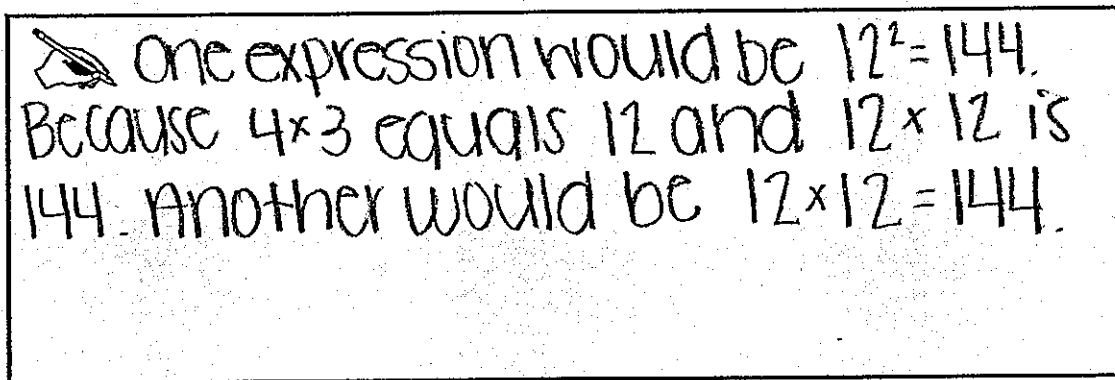 One expression would be 12² = 144.
Because 4×3 equals 12 and 12 × 12 is
144. Another would be 12×12 = 144.